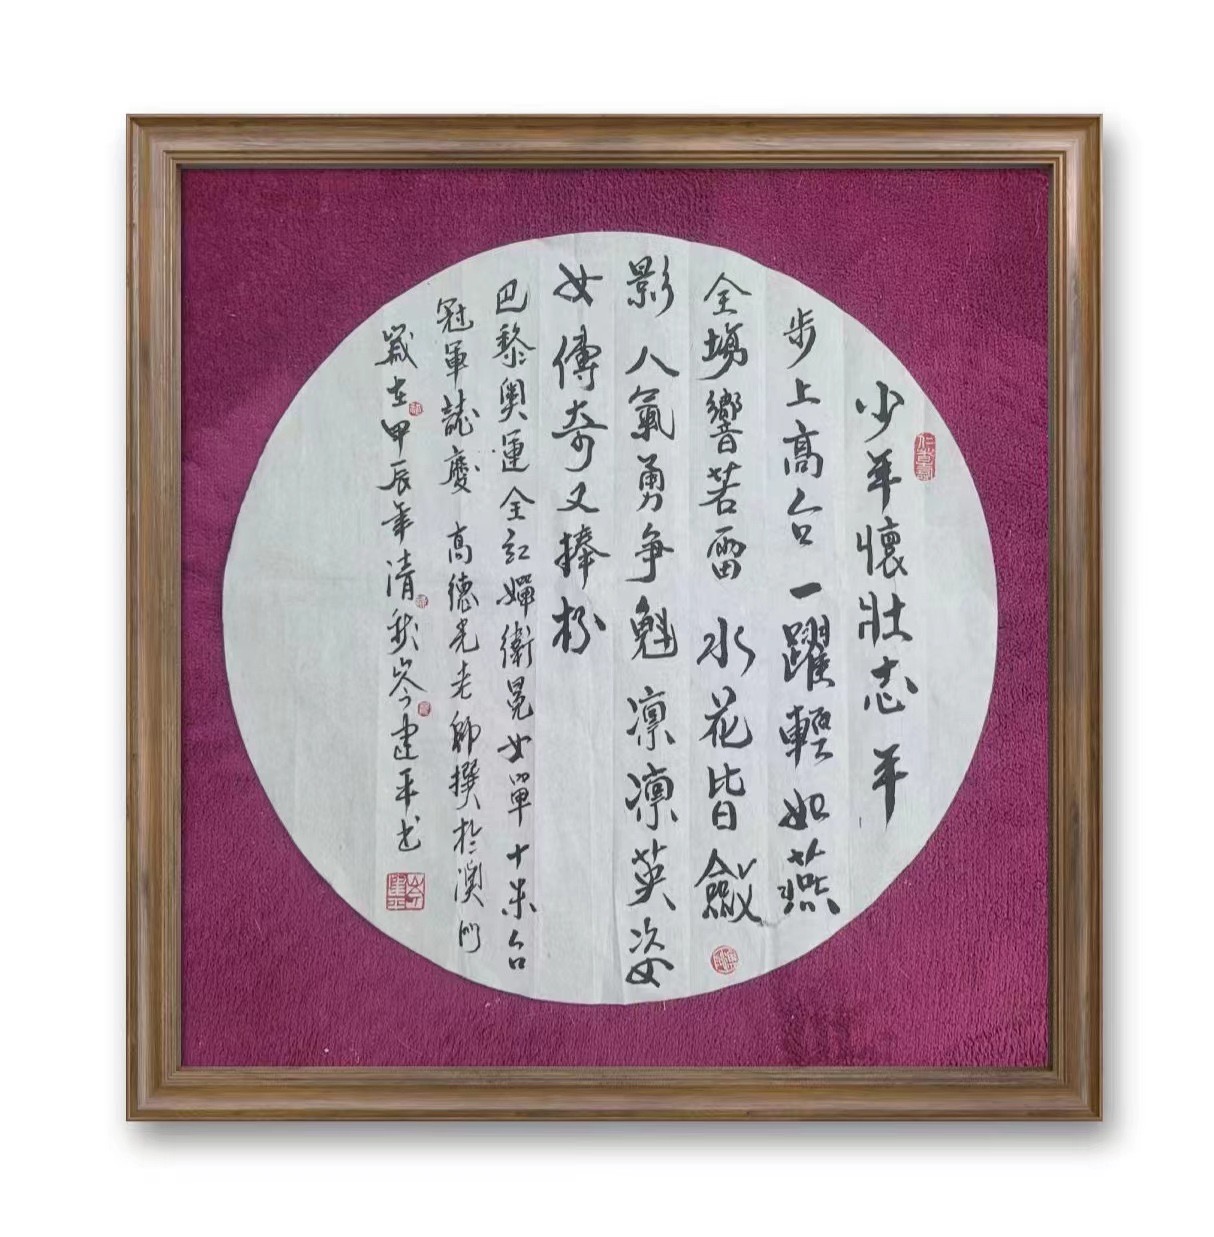 少年懷壯志 平
步上高台 一躍輕如燕
全場響若雷 水花皆斂
影 人氣勇争魁 凛凛英姿
女傳奇又捧杯
巴黎奧運全紅嬋衛冕女單十米台
冠軍誌慶 高德光老師撰於澳門
歲在甲辰年清秋岑建平书